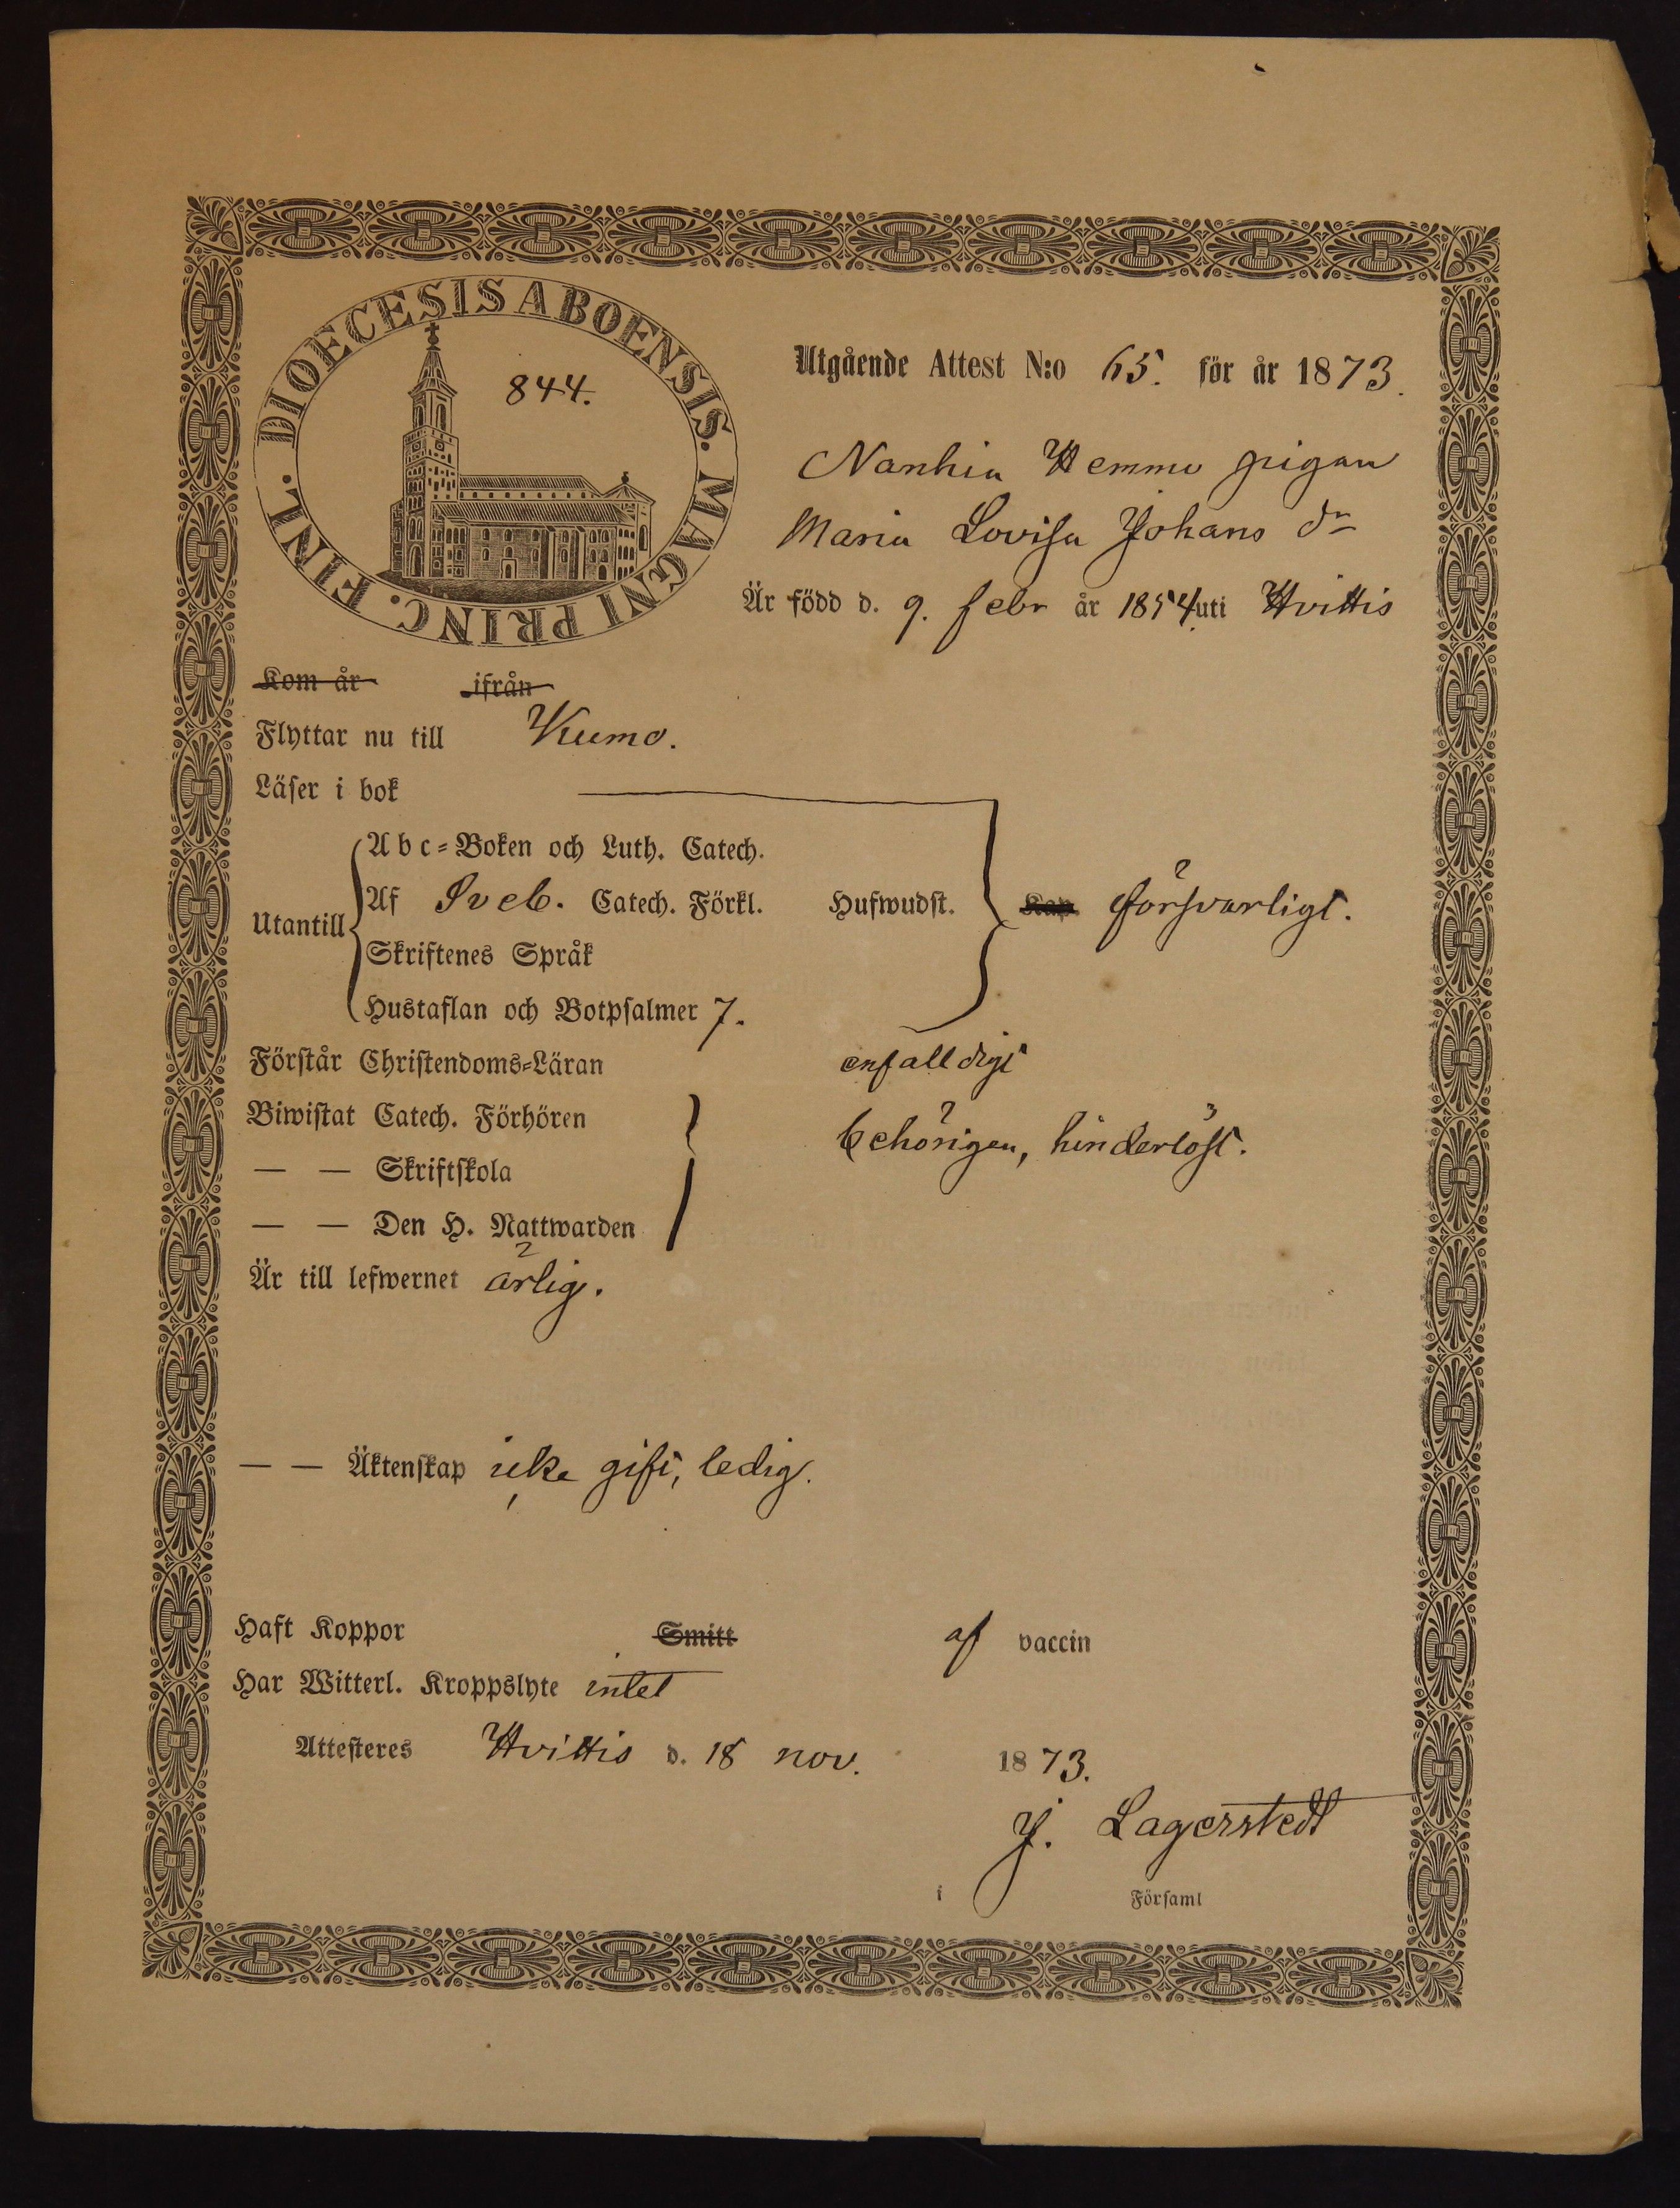 DIOECESIS ABOENSIS. MAGNI PRINC. FINL.
844.
Utgående Attest N:o 65. för år 1873.
Nanhia Hemmo pigan
Maria Lovisa Johans dr
Är född d. 9. febr år 1854 uti Hvittis
Kom år ifrån
Flyttar nu till Kumo.
Läser i bok
Utantill
Abc-Boken och Luth. Catech.
Af Sveb. Catech. Förkl. Hufwudst. Kap. försvarligt.
Skriftenes Språk
Hustaflan och Botpsalmer 7.
Förstår Christendoms-Läran enfalldigt
Biwistat Catech. Förhören
behörigen, hinderlöst.
— — Skriftskola
— — Den H. Nattwarden
Är till lefwernet ärlig.
— — Äktenskap icke gift, ledig.
Haft Koppor Smitt af vaccin
Har Witterl. Kroppslyte intet
Attesteres Hvittis d. 18 nov. 1873.
J. Lagerstedt
i Församl